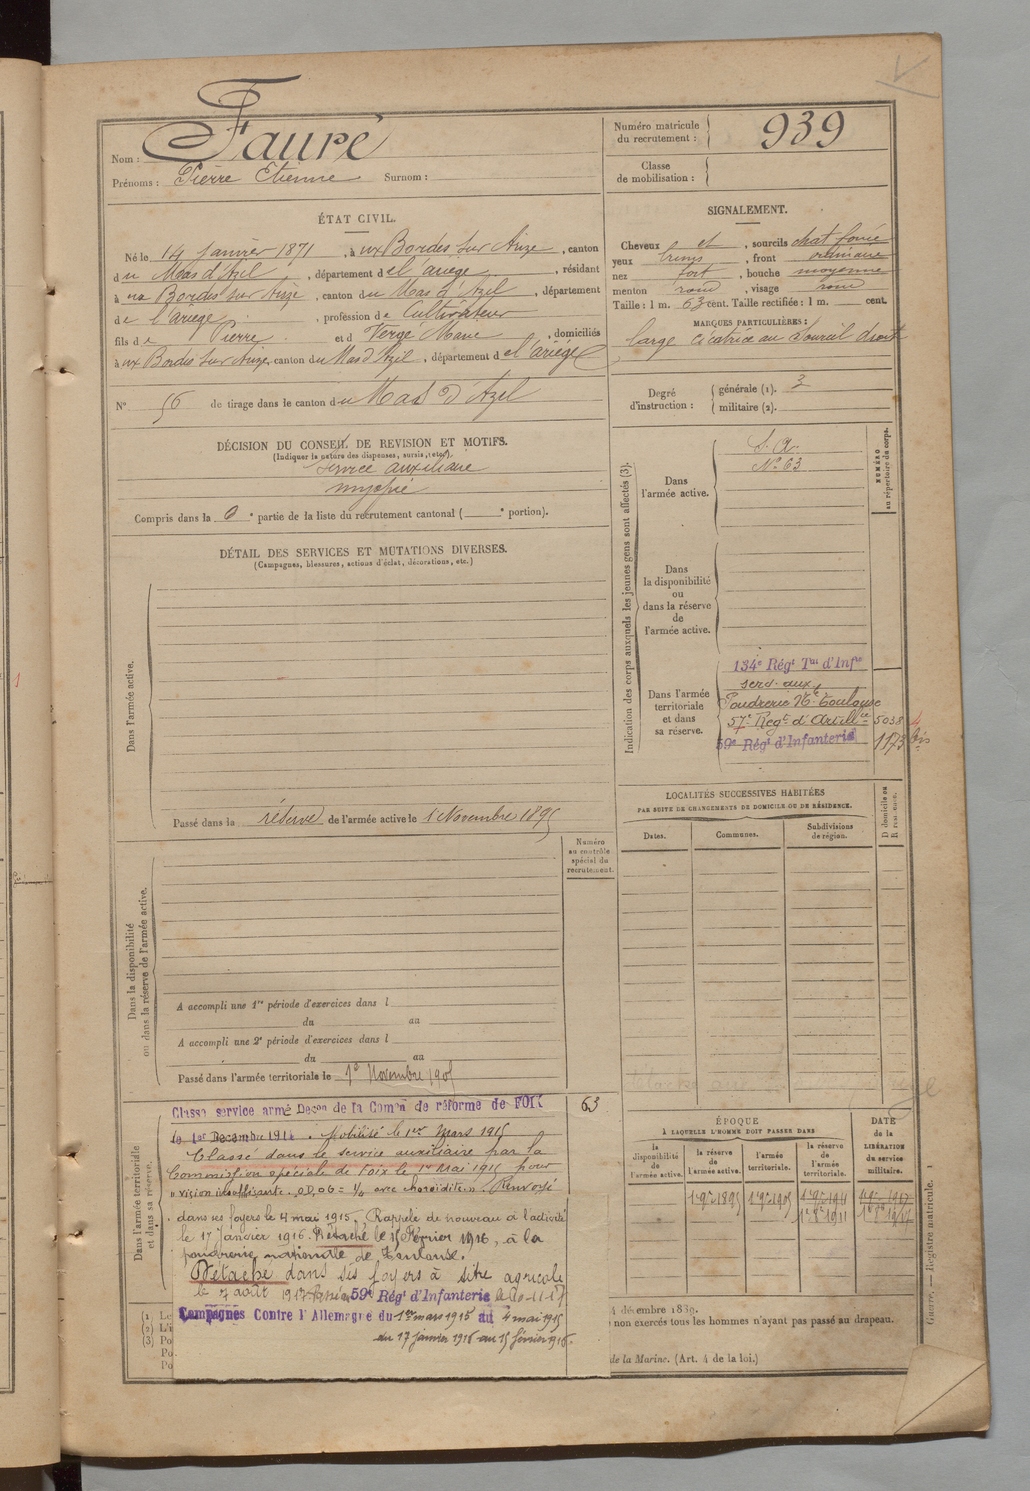 Nom : Fauré
Prénoms : Pierre Etienne Surnom :
Numéro matricule du recrutement : 939
Classe de mobilisation :
ÉTAT CIVIL.
Né le 14 Janvier 1871, à ux Bordes sur Arize, canton
du Mas d'Azil, département de l'ariège, résidant
à ux Bordes sur Arize, canton du Mas d'Azil, département
de l'ariège, profession de Cultivateur
fils de Pierre et d Vergé Marie, domiciliés
à ux Bordes sur Arize, canton du Mas d'Azil, département de l'ariège
N° 56 de tirage dans le canton du Mas d'Azil
SIGNALEMENT.
Cheveux et, sourcils chat foncé
yeux bruns, front ordinaire
nez fort, bouche moyenne
menton rond, visage rond
Taille : 1 m. 63 cent. Taille rectifiée : 1 m. cent.
MARQUES PARTICULIÈRES :
large cicatrice au Sourcil droit
Degré d'instruction : générale (1). 3
militaire (2).
DÉCISION DU CONSEIL DE REVISION ET MOTIFS.
(Indiquer la nature des dispenses, sursis, etc.)
service auxiliaire
myopie
Compris dans la 6e partie de la liste du recrutement cantonal ( e portion).
DÉTAIL DES SERVICES ET MUTATIONS DIVERSES.
(Campagnes, blessures, actions d'éclat, décorations, etc.)
Dans l'armée active.
Passé dans la réserve de l'armée active le 1 Novembre 1895
Indication des corps auxquels les jeunes gens sont affectés (3).
NUMÉRO au répertoire du corps.
Dans l'armée active.
S. A.
N° 63
Dans la disponibilité ou dans la réserve de l'armée active.
Dans l'armée territoriale et dans sa réserve.
134e Régt Tal d'Infie
serv. aux.
Poudrerie Nle Toulouse
57e Régt d'Artillie 5038
59e Régt d'Infanterie 1173 bis
LOCALITÉS SUCCESSIVES HABITÉES
PAR SUITE DE CHANGEMENTS DE DOMICILE OU DE RÉSIDENCE.
Dates. Communes. Subdivisions de région. D domicile ou R résidence.
Dans la disponibilité ou dans la réserve de l'armée active.
Numéro au contrôle spécial du recrutement.
A accompli une 1re période d'exercices dans l
du au
A accompli une 2e période d'exercices dans l
du au
Passé dans l'armée territoriale le 1er Novembre 1905
Dans l'armée territoriale et dans sa réserve.
63
Classé service armé Decon de la Comon de réforme de FOIX
le 1er Decembre 1914. Mobilisé le 1er Mars 1915
Classé dans le service auxiliaire par la
Commission spéciale de Foix le 1er Mai 1915 pour
"vision insuffisante. OD, OG = 1/4 avec choroïdite". Renvoyé
dans ses foyers le 4 mai 1915. Rappelé de nouveau à l'activité
le 17 Janvier 1916. Détaché le 15 Février 1916, à la
poudrerie nationale de Toulouse.
Détaché dans ses foyers à titre agricole
le 7 août 1917 59e Régt d'Infanterie le 10-11-17
Campagnes Contre l'Allemagne du 1er mars 1915 au 4 mai 1915
du 17 Janvier 1916 au 15 février 1916.
ÉPOQUE
À LAQUELLE L'HOMME DOIT PASSER DANS
DATE de la LIBÉRATION du service militaire.
la disponibilité de l'armée active. la réserve de l'armée active. l'armée territoriale. la réserve de l'armée territoriale.
1er 9re 1895 1er 9re 1905 1er 9re 1911 1er 9re 1917
1er 8re 1911 1er 8re 1917
4 décembre 1889.
non exercés tous les hommes n'ayant pas passé au drapeau.
de la Marine. (Art. 4 de la loi.)
(1) Le
(2) L'i
(3) Po
Po
Po
Guerre. — Registre matricule. 1